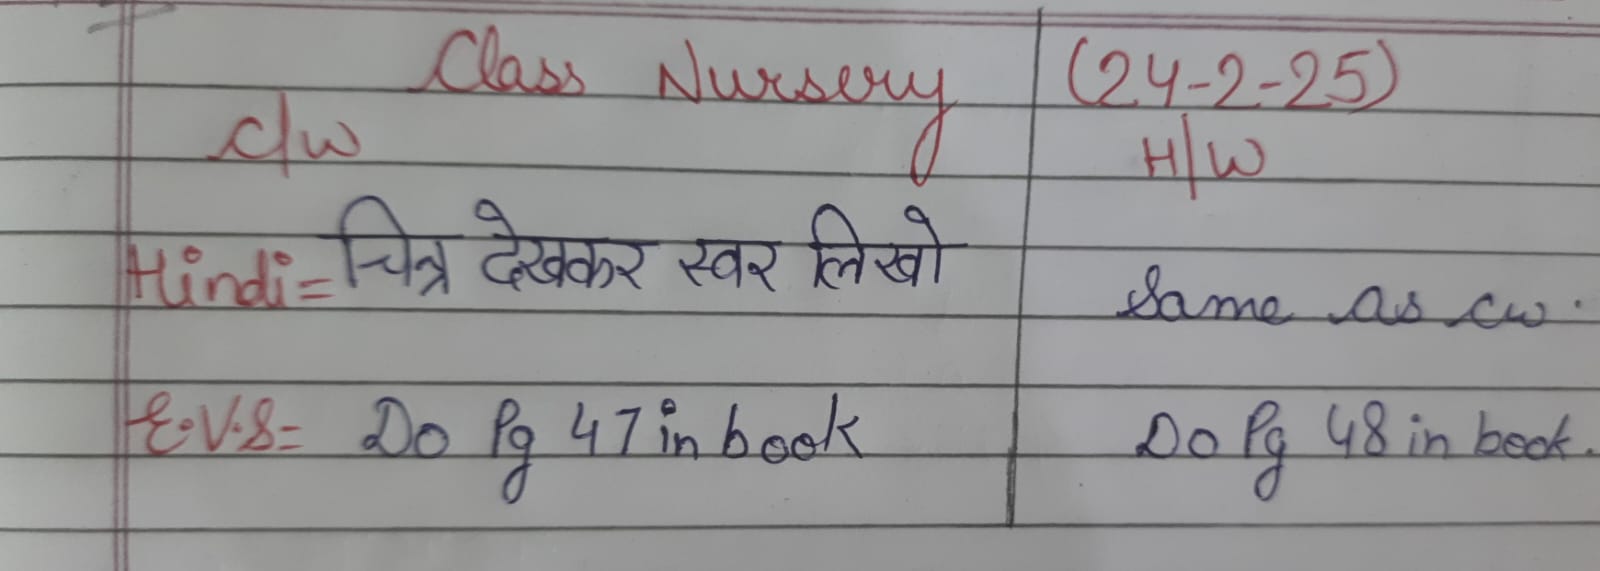 Class Nursery (24-2-25)
C/w H/W
Hindi= चित्र देखकर स्वर लिखो Same as cw.
E.V.S= Do Pg 47 in book Do Pg 48 in book.